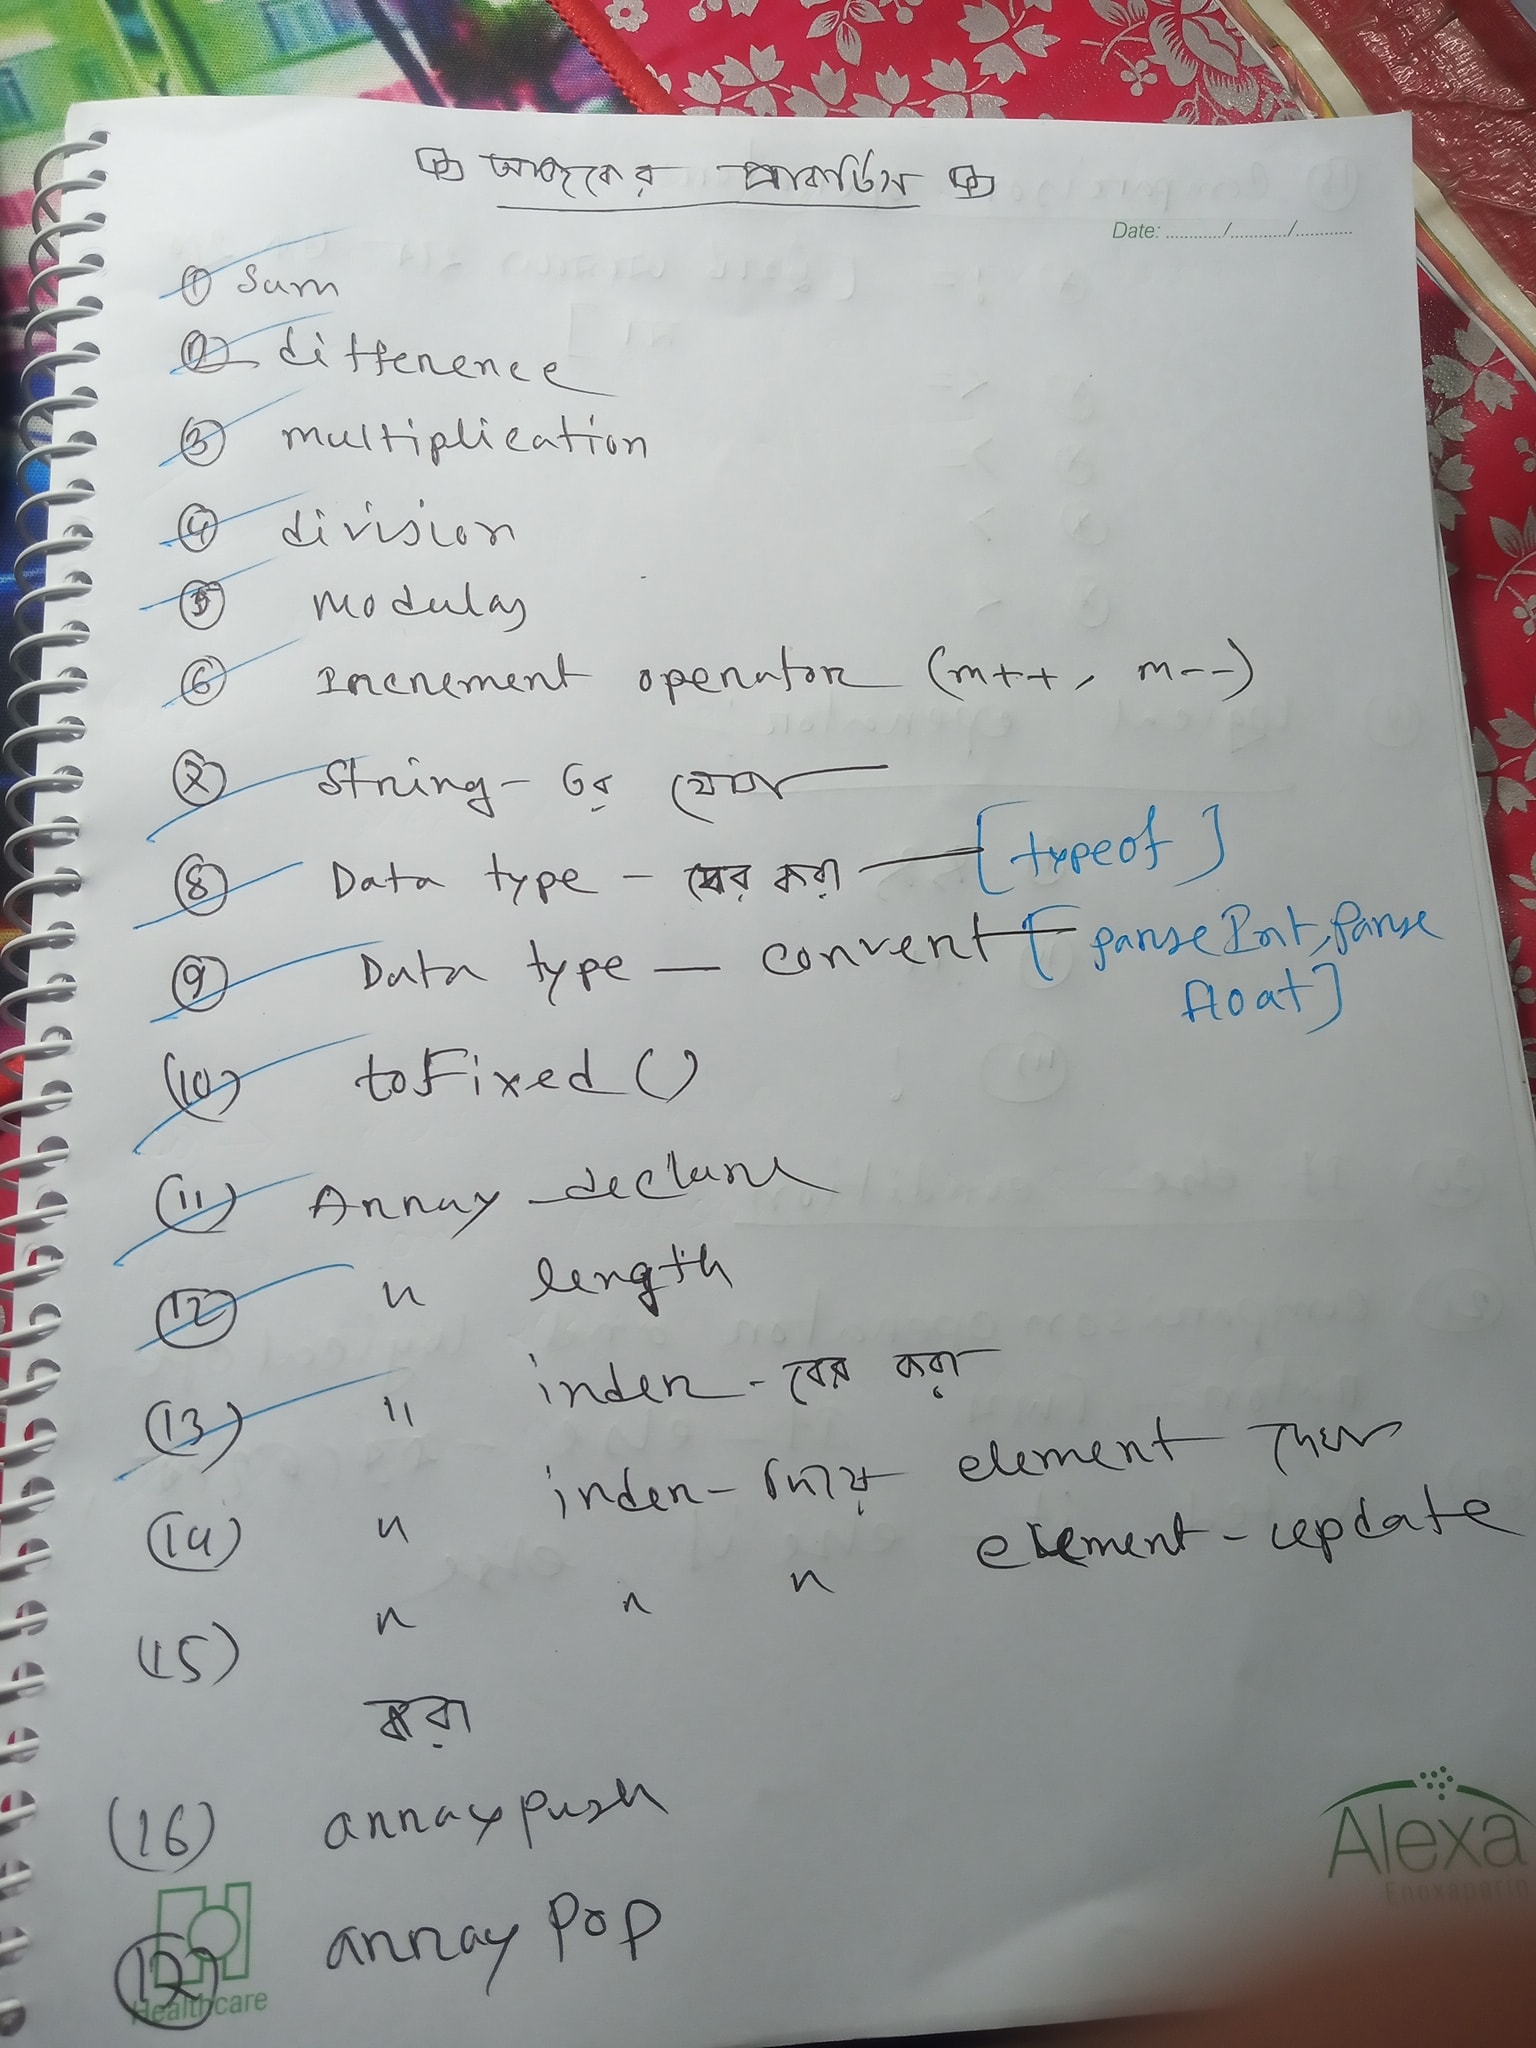 আজকের প্রাকটিস
Date: ............/............/............
① Sum
② difference
③ multiplication
④ division
⑤ Modulas
⑥ Increment operator (m++, m--)
⑦ String - এর যোগ
⑧ Data type - বের করা — [typeof]
⑨ Data type — convert [parseInt, parse
float]
(10) toFixed()
(11) Array declare
(12) " length
(13) " index - বের করা
(14) " index - দিয়ে element দেখা
(15) " " " element - update
করা
(16) array push
(17) array pop
Alexa
Enoxaparin
Healthcare